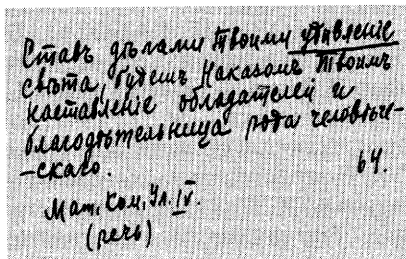 Ставъ дѣлами твоими удивленіе
свѣта, будешь Наказомъ твоимъ
наставленіе обладателей и
благодѣтельница рода человѣче-
-скаго.
64.
Мат. Ком. Ул. IV.
(речь)